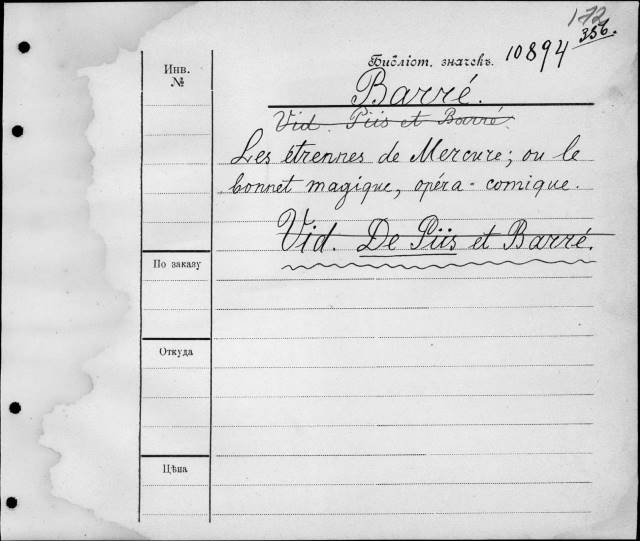 172
356.
Инв.
№
Библіот. значекъ. 10894
Barré.
Vid. Piis et Barré.
Les étrennes de Mercure; ou le
bonnet magique, opéra-comique.
Vid. De Piis et Barré.
По заказу
Откуда
Цѣна